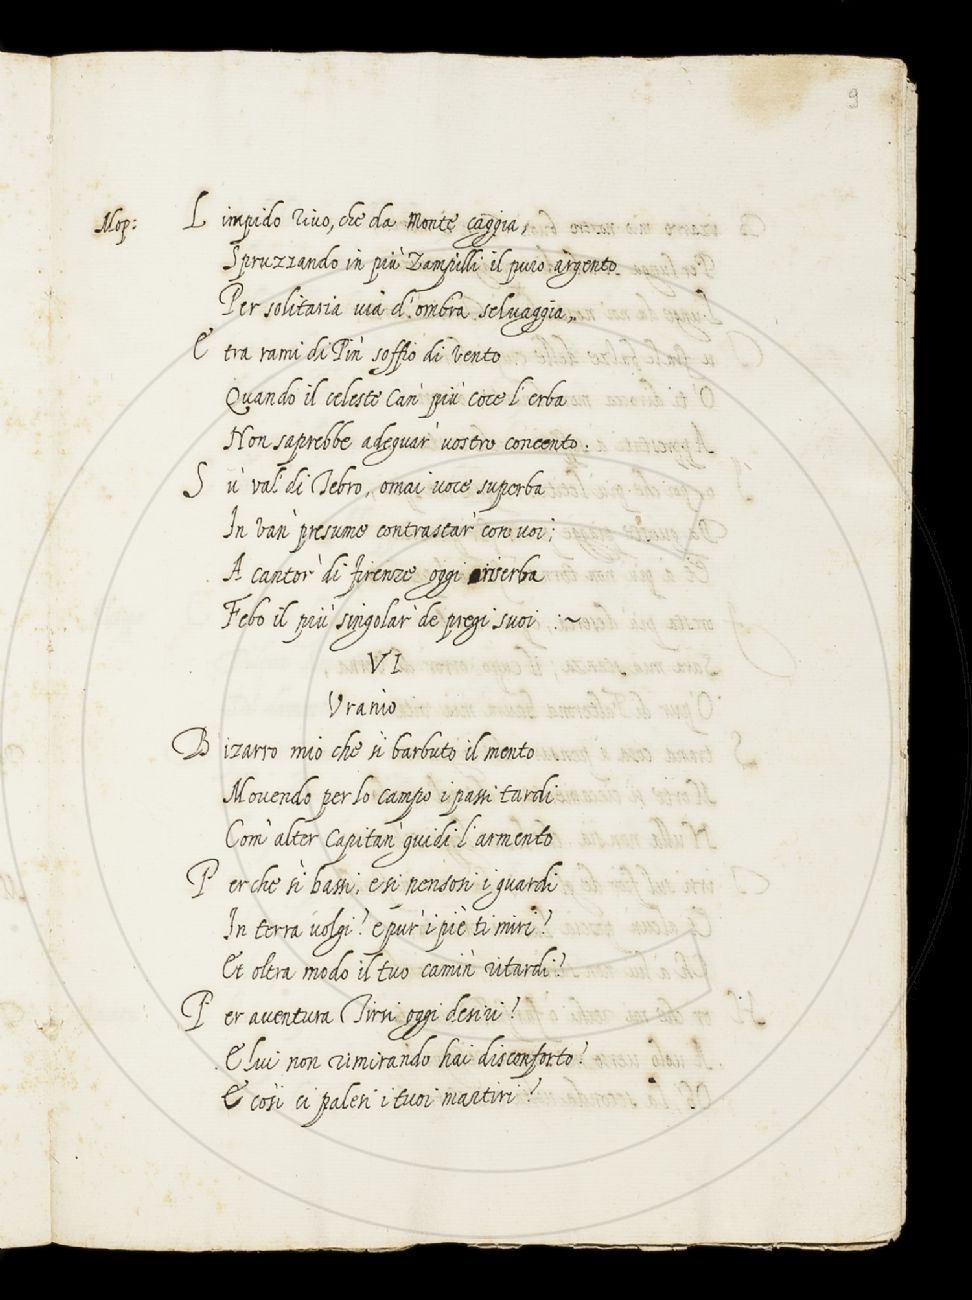 9
Mop: Limpido rivo, che da Monte caggia,
Spruzzando in più Zampilli il puro argento
Per solitaria via d'ombra selvaggia,
E tra rami di Pin' soffio di vento
Quando il celeste Can' più coce l'erba
Non saprebbe adeguar' vostro concento.
Sù val' di Tebro, omai voce superba
In van' presume contrastar' con voi;
A cantor' di firenze oggi riserba
Febo il più singolar' de pregi suoi :~
VI
Uranio
Bizarro mio che sì barbuto il mento
Movendo per lo campo i passi tardi
Com' alter Capitan' guidi l'armento
Perche sì bassi, e sì pensosi i guardi
In terra volgi? e pur' i piè ti miri?
Et oltra modo il tuo camin' ritardi?
Per aventura Tirsi oggi desiri?
E lui non rimirando hai disconforto?
E così ci palesi i tuoi martiri?